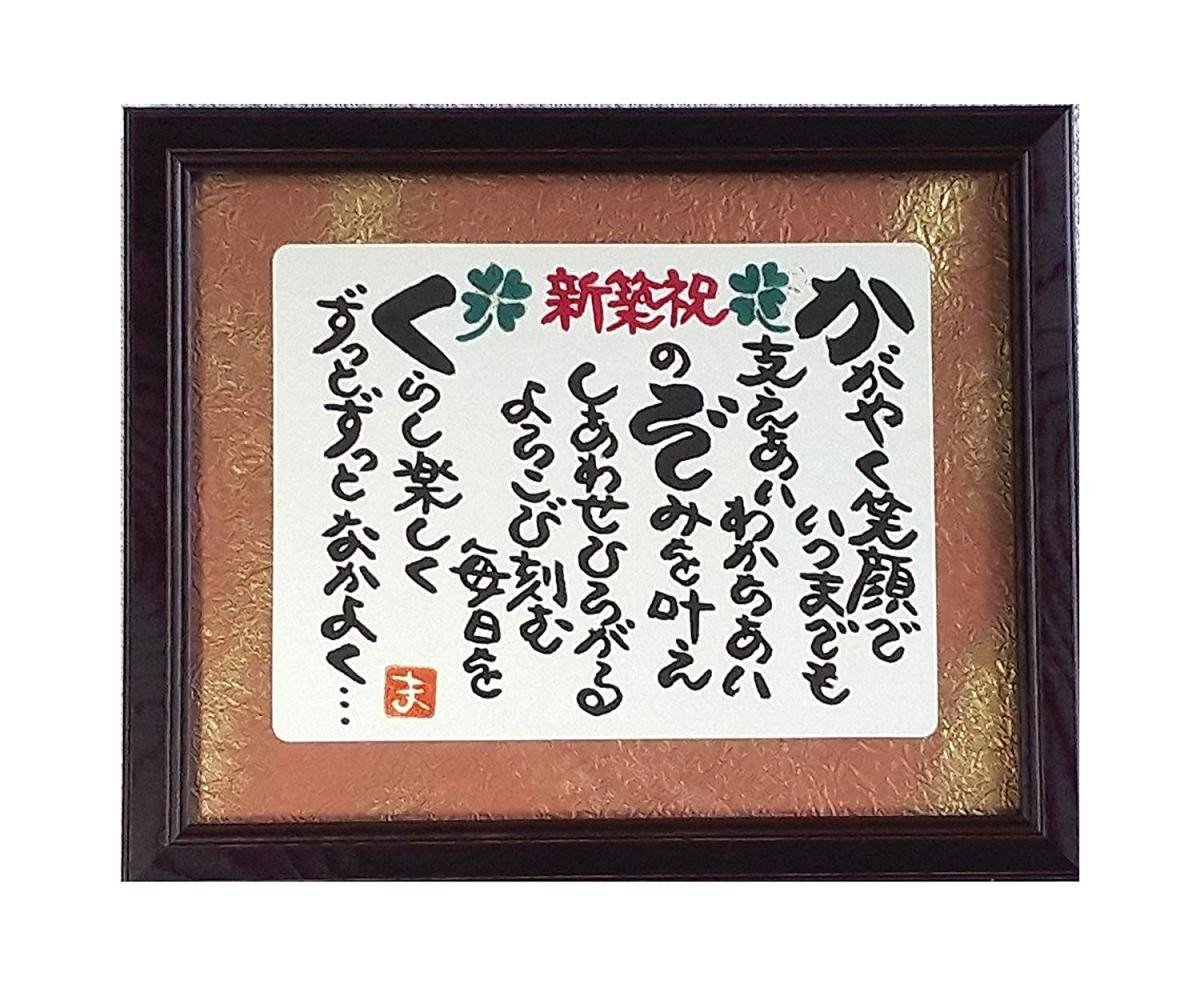 新築祝
かがやく笑顔で
いつまでも
支えあい
わかちあい
のぞみを叶え
しあわせひろがる
よろこび刻む
毎日を
くらし楽しく
ずっとずっとなかよく…
ま